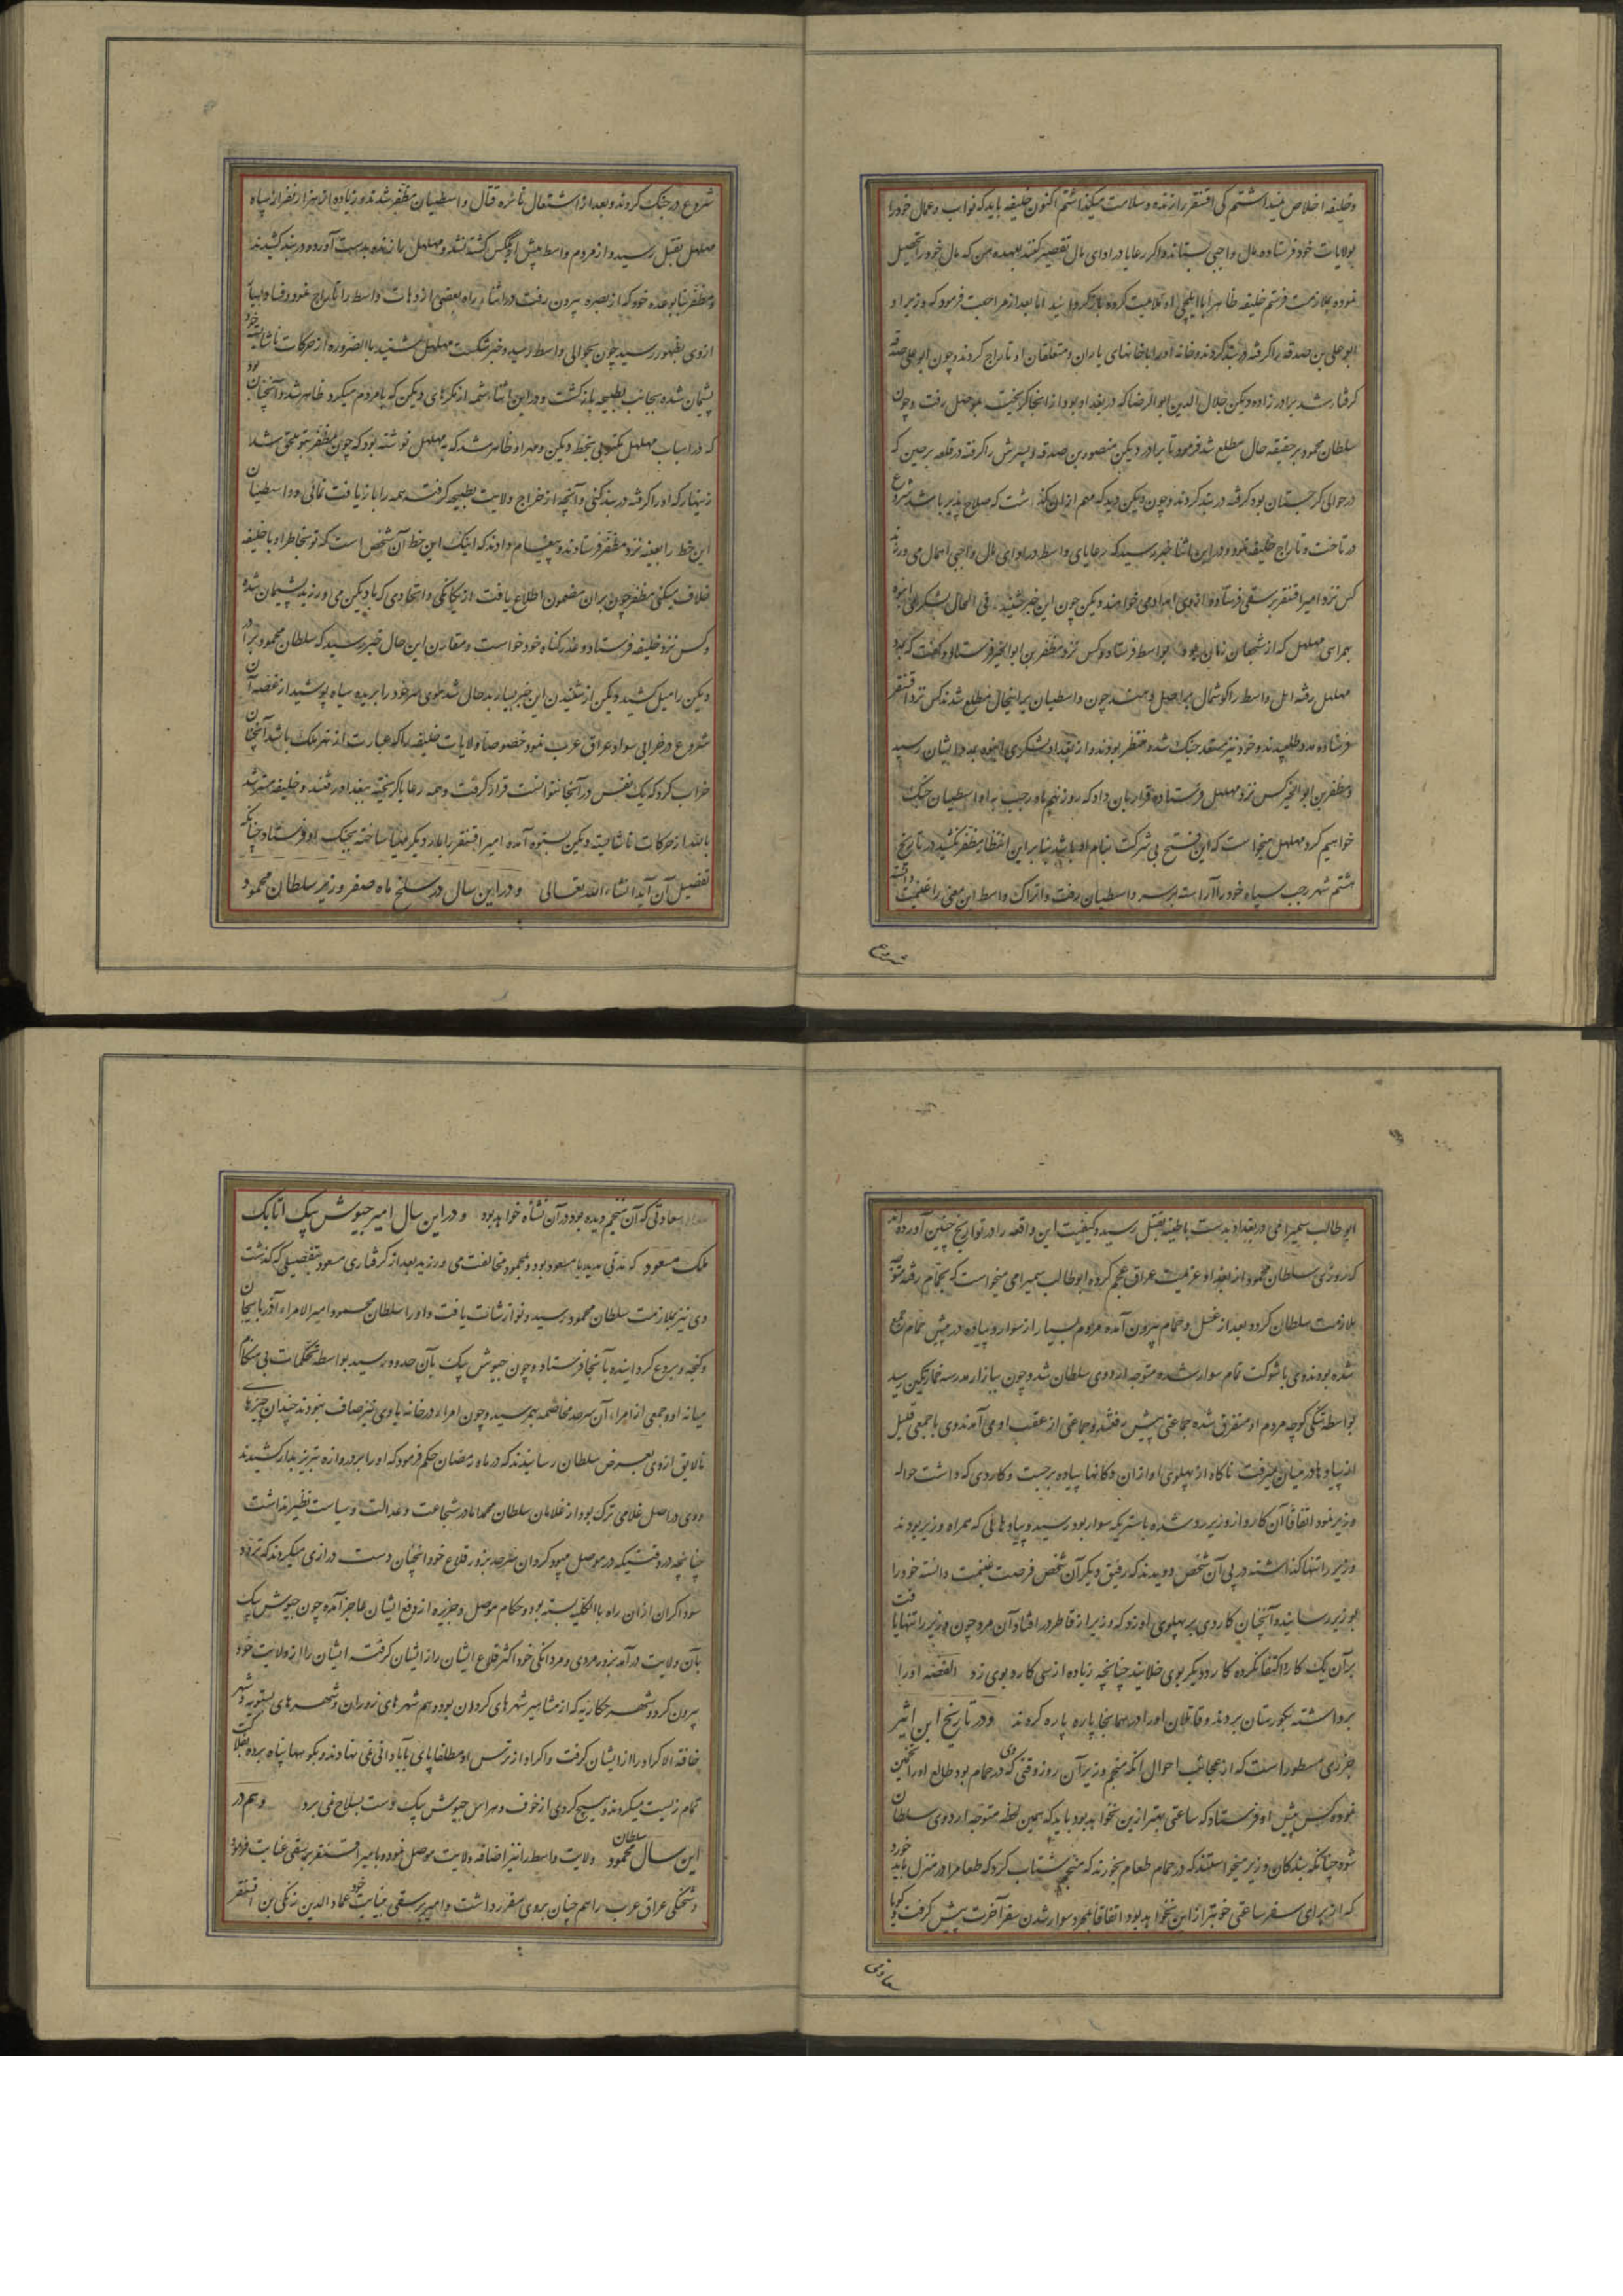 و خلیفه اخلاص میداشتم کی اقسنقر را زنده و سلامت میگذاشتم اکنون خلیفه باید که نواب و عمال خود را
بولایات خود فرستاده مال واجبی بستاند و اگر رعایا در ادای مال تقصیر کنند بعهده من که مال خود را تحصیل
نموده بملازمت فرستم خلیفه ظاهرا با ایلچی او ملایمت کرده باز گردانید اما بعد از مراجعت فرمود که وزیر او
ابو علی بن صدقه را گرفته در بند کردند و خانه او را با خانهای یاران و متعلقان او تاراج کردند و چون ابو علی صدقه
گرفتار شد برادرزاده دیگرش جلال الدین ابو الرضا که در بغداد بود از انجا گریخت بموصل رفت و چون
سلطان محمود بر حقیقه حال مطلع شد فرمود تا برادر دبیس منصور بن صدقه و پسرش را گرفته در قلعه برجین که
در حوالی کرجستان بود گرفته در بند کردند و چون دبیس دید که مهم از ان گذشت که صلاح پذیر باشد شروع
در تاخت و تاراج خلیفه نمود و در این اثنا خبر رسید که رعایای واسط در ادای مال واجبی اهمال می ورزند
کس نزد امیر اقسنقر برسقی فرستاده از وی امداد می خواهند دبیس چون این خبر شنید فی الحال لشکری انبوه
بهمراهی مهلهل که از شجعان زمان بود بواسط فرستاد و کس نزد مظفر بن ابو الخیر فرستاد و گفت که بمدد
مهلهل رفته اهل واسط را گوشمال بواجبی دهند چون واسطیان بر اینحال مطلع شدند کس نزد اقسنقر
فرستاده مدد طلبیدند و خود نیز مستعد جنک شده منتظر بودند و از بغداد لشکری انبوه بمدد ایشان رسید
و مظفر بن ابو الخیر کس نزد مهلهل فرستاده قرار بان داد که روز نهم ماه رجب با واسطیان جنک
خواهیم کرد مهلهل میخواست که این فتح بی شرکت بنام او باشد بنا بر این انتظار مظفر نکشید در تاریخ
هشتم شهر رجب سپاه خود را آراسته بر سر واسطیان رفت و اتراک واسط این معنی را غنیمت دانسته
شروع
شروع در جنک کردند و بعد از اشتعال نائره قتال واسطیان مظفر شدند و زیاده از هزار نفر از سپاه
مهلهل بقتل رسید و از مردم واسط بیش از یک کس کشته نشد و مهلهل را زنده بدست آورده در بند کشیدند
و مظفر بنا بوعده خود که از بصره بیرون رفت در اثناء راه بعضی از دهات واسط را تاراج نمود و فساد بسیار
از وی بظهور رسید چون بحوالی واسط رسید و خبر شکست مهلهل شنید بالضروره از حرکات ناشایسته خود
پشیمان شده بجانب بطیحه بازگشت و در این اثنا شمه از مکرهای دبیس که با مردم میکرد ظاهر شد و آنچنان بود
که در اسباب مهلهل مکتوبی بخط دبیس و مهر او ظاهر شد که به مهلهل نوشته بود که چون مظفر بتو ملحق شد
زینهار که او را گرفته در بند کنی و آنچه از خراج ولایت بطیحه گرفته همه را بازیافت نمائی و واسطیان
این خط را بعینه نزد مظفر فرستادند و پیغام دادند که اینک این خط آن شخص است که تو بخاطر او با خلیفه
خلاف میکنی مظفر چون بر ان مضمون اطلاع یافت از یگانگی و اتحادی که با دبیس می ورزید پشیمان شده
و کس نزد خلیفه فرستاد و عذر گناه خود خواست و مقارن این حال خبر رسید که سلطان محمود برادر
دبیس را میل کشید دبیس از شنیدن این خبر بسیار بدحال شد موی سر خود را بریده سیاه پوشید از غصه آن
شروع در خرابی سواد عراق عرب نمود خصوصا ولایات خلیفه را که عبارت از نهر ملک باشد آنچنان
خراب کرد که یک نفس در آنجا نتوانست قرار گرفت و همه رعایا گریخته ببغداد رفتند و خلیفه مسترشد
بالله از حرکات ناشایسته دبیس بستوه آمده امیر اقسنقر را بار دیگر مهیا ساخته بجنک او فرستاد چنانکه
تفصیل آن آید انشاء الله تعالی و در این سال در سلخ ماه صفر وزیر سلطان محمود
ابو طالب سمیرامی در بغداد بدست باطنیه بقتل رسید و کیفیت این واقعه را در تواریخ چنین آورده اند
که روزی سلطان محمود از بغداد عزیمت عراق عجم کرده ابو طالب سمیرامی میخواست که بحمام رفته متوجه
ملازمت سلطان گردد بعد از غسل و حمام بیرون آمده مردم بسیار از سوار و پیاده در پیش حمام جمع
شده بودند وی با شوکت تمام سوار شده متوجه اردوی سلطان شد و چون ببازار مدرسه خمارتکین رسید
بواسطه تنگی کوچه مردم او متفرق شده جماعتی پیش رفتند و جماعتی از عقب او می آمدند وی با جمعی قلیل
از پیادها در میان میرفت ناگاه از پهلوی او از ان دکانها پیاده برجست و کاردی که داشت حواله
وزیر نمود اتفاقا آن کارد از وزیر رد شده باستریکه سوار بود رسید و پیادهائی که همراه وزیر بودند
وزیر را تنها گذاشته در پی آن شخص دویدند که رفیق دیگر آن شخص فرصت غنیمت دانسته خود را
بوزیر رسانید و آنچنان کاردی بر پهلوی او زد که وزیر از قاطر در افتاد آن مرد چون وزیر را تنها یافت
بر آن یک کارد اکتفا نکرده کارد دیگر بوی خلانید چنانچه زیاده از سی کارد بوی زد القصه او را
برداشته بگورستان بردند و قاتلان او را در همانجا پاره پاره کردند و در تاریخ ابن اثیر
جزری مسطور است که از عجائب احوال انکه منجم وزیر آن روز وقتی که وی در حمام بود طالع او را تعیین
نموده کس پیش او فرستاد که ساعتی بهتر از ین نخواهد بود باید که همین لحظه متوجه اردوی سلطان
شود چنانکه بندگان وزیر میخواستند که در حمام طعام بخورند که منجم شتاب کرد که طعام را در منزل باید خورد
که از برای سفر ساعتی خوبتر از این نخواهد بود اتفاقا بمجرد سوار شدن سفر آخرت پیش گرفت و گویا
سعادتی
سعادتی که آن منجم دیده بود در آن نشأه خواهد بود و در این سال امیر جیوش بیک اتابک
ملک مسعود که مدتی مدید با مسعود بود و بمحمود مخالفت می ورزید بعد از گرفتاری مسعود بتفصیلی که گذشت
وی نیز بملازمت سلطان محمود رسید و نوازشات یافت و او را سلطان محمود امیر الامراء آذربایجان
و گنجه و بردع گردانیده بآنجا فرستاد و چون جیوش بیک بآن حدود رسید بواسطه تحکمات بی هنگام
میانه او و جمعی از امراء آن سرحد مخاصمه بهم رسید و چون امراء در خانه با وی نیز صاف نبودند چندان چیزهای
نالایق از وی بعرض سلطان رسانیدند که در ماه رمضان حکم فرمود که او را بر دروازه تبریز بدار کشیدند
و وی در اصل غلامی ترک بود از غلامان سلطان محمد اما در شجاعت و عدالت و سیاست نظیر نداشت
چنانچه در وقتیکه در موصل میبود کردان سرحد بزور قلاع خود انچنان دست درازی میکردند که تردد
سوداگران از ان راه بالکلیه بسته بود و حکام موصل و جزیره از دفع ایشان عاجز آمده چون جیوش بیک
بآن ولایت درآمد بزور مردی و مردانگی خود اکثر قلاع ایشان را از ایشان گرفته ایشان را از ولایت خود
بیرون کرد و شهر هکاریه که از مشاهیر شهرهای کردان بود و هم شهرهای زوزان و شهرهای بشنویه و شهر
خافته الاکراد را از ایشان گرفت و اکراد از ترس او مطلقا پای بآبادانی نمی نهادند و بکوهها پناه برده بفلاکت
تمام زیست میکردند و هیچ کردی از خوف و هراس جیوش بیک دست بسلاح نمی برد و هم در
این سال سلطان محمود ولایت واسط را نیز اضافه ولایت موصل نموده بامیر اقسنقر برسقی عنایت فرمود
و شحنگی عراق عرب را هم چنان بروی مقرر داشت و امیر برسقی بنیابت خود عماد الدین زنگی بن اقسنقر